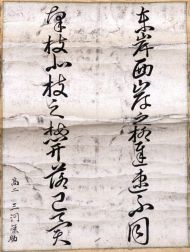 東岸西岸之柳遅速不同
南枝北枝之梅開落已異
高二 三河 助